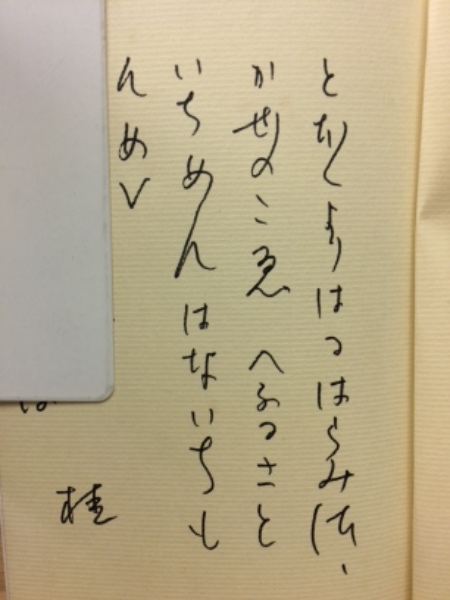 とおくよりはるはらみ
かぜのこゑ へふるさと
いちめんはないちも
んめ
桂